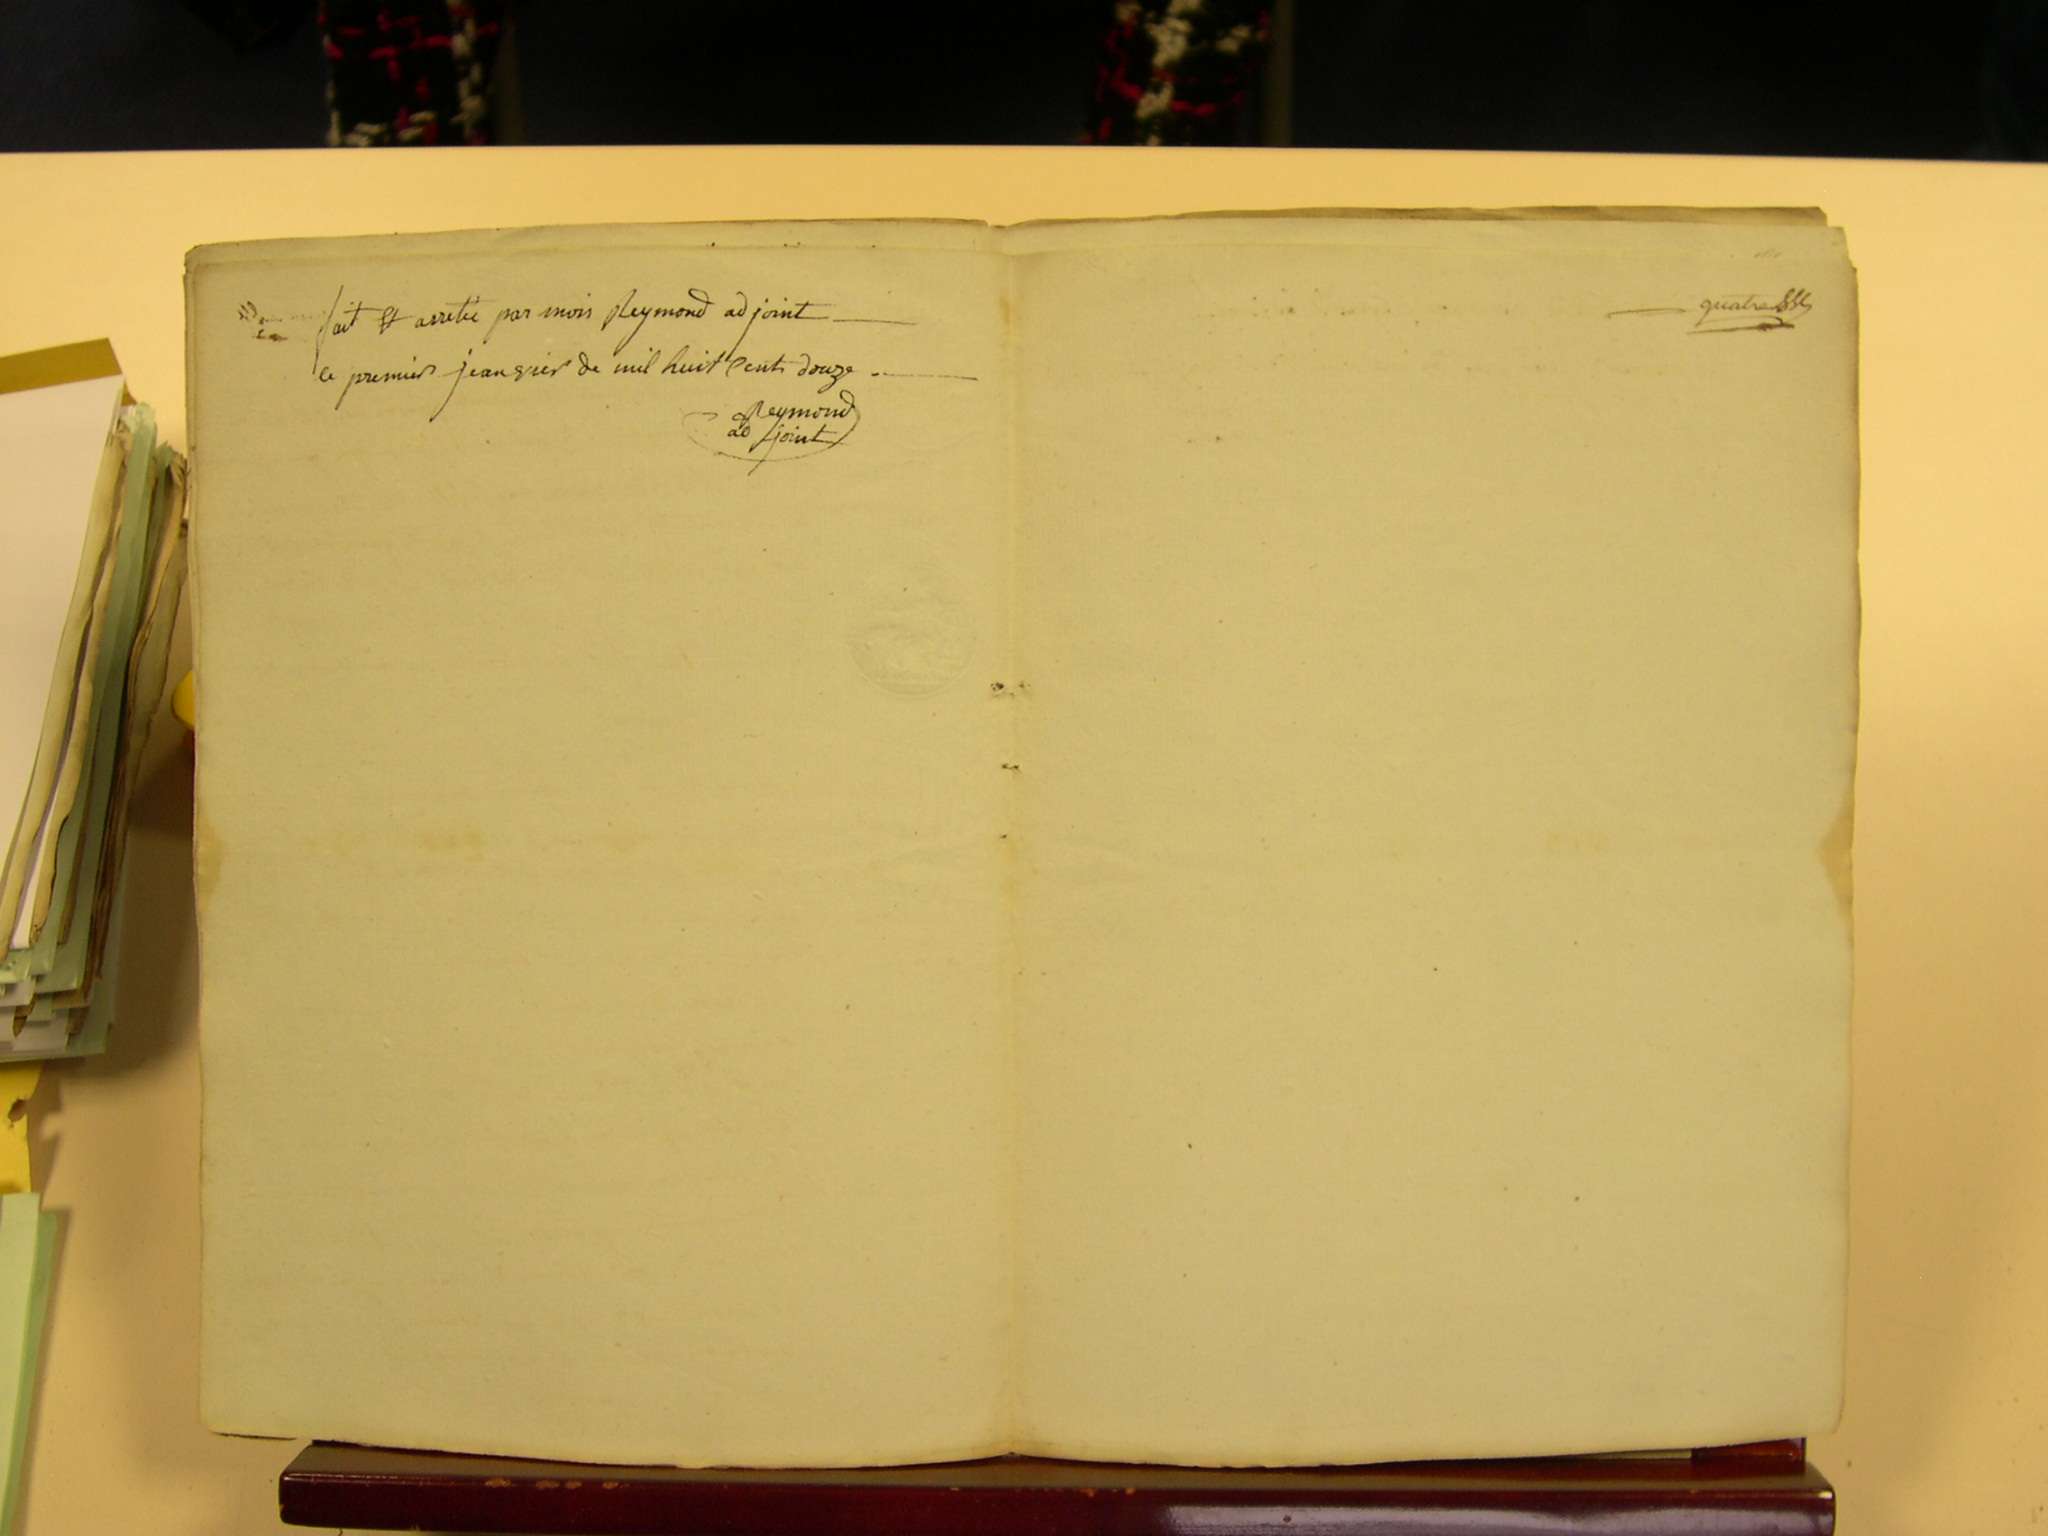 fait et arretté par mois Reymond adjoint
le premier jeanvier de mil huit cents douze
Reymond
adjoint
quatre